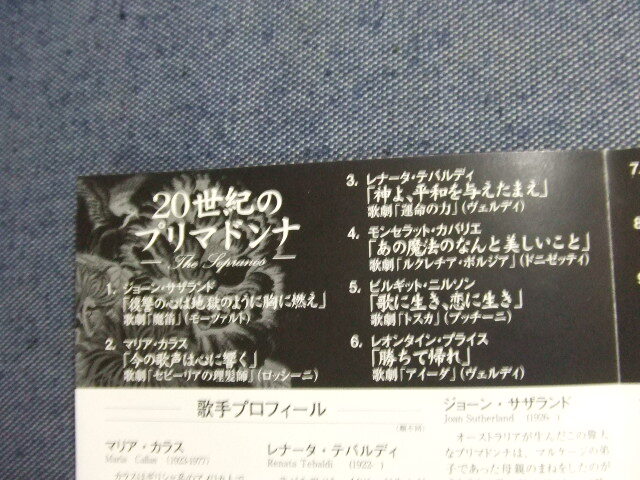 20世紀の
プリマドンナ
The Sopranos
1. ジョーン・サザランド
「復讐の心は地獄のように胸に燃え」
歌劇「魔笛」(モーツァルト)
2. マリア・カラス
「今の歌声は心に響く」
歌劇「セビーリアの理髪師」(ロッシーニ)
3. レナータ・テバルディ
「神よ、平和を与えたまえ」
歌劇「運命の力」(ヴェルディ)
4. モンセラット・カバリエ
「あの魔法のなんと美しいこと」
歌劇「ルクレチア・ボルジア」(ドニゼッティ)
5. ビルギット・ニルソン
「歌に生き、恋に生き」
歌劇「トスカ」(プッチーニ)
6. レオンタイン・プライス
「勝ちて帰れ」
歌劇「アイーダ」(ヴェルディ)
7.
8
9
歌手プロフィール
マリア・カラス
Maria Callas (1923-1977)
レナータ・テバルディ
Renata Tebaldi (1922- )
ジョーン・サザランド
Joan Sutherland (1926- )
オーストラリアが生んだこの偉大
なプリマドンナは、マルケージの弟
子であった母親のまねをしたのが